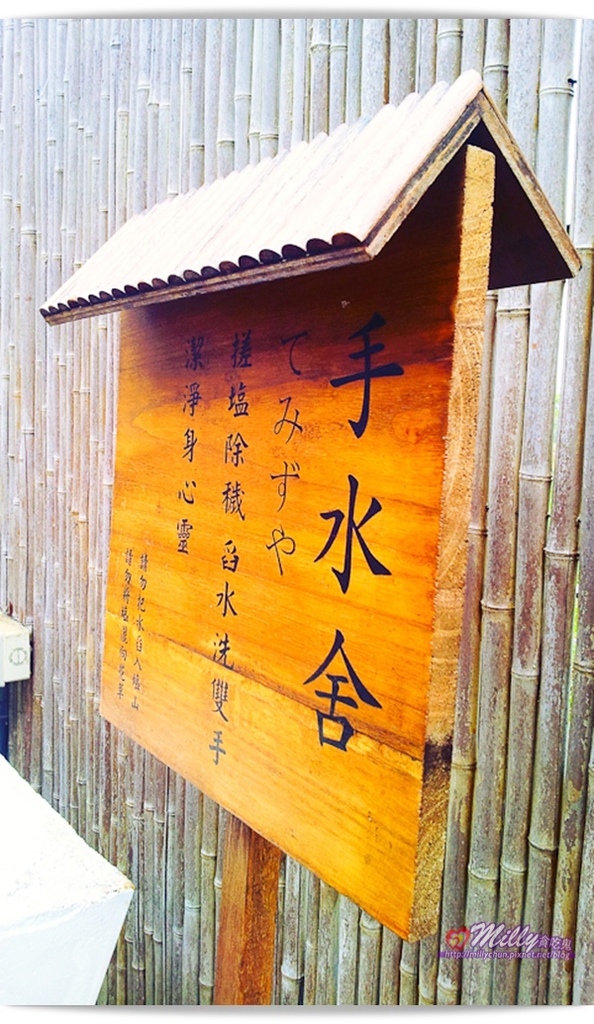 手水舍
てみずや
搓塩除穢 舀水洗雙手
潔淨身心靈
請勿把水舀入塩山
請勿將塩灑向花草
Milly貪吃鬼
http://millychun.pixnet.net/blog